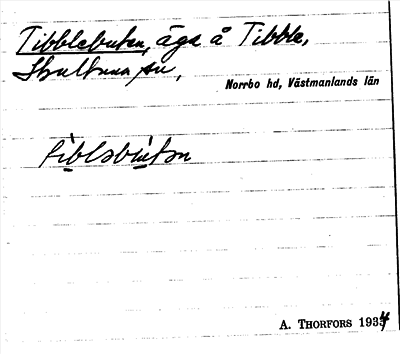 Tibblebuten, äga å Tibble,
Skultuna sn,
Norrbo hd, Västmanlands län
tiblabutən
A. THORFORS 1934